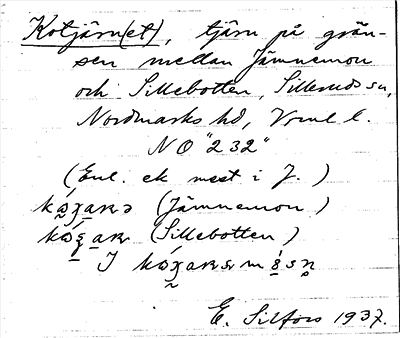 Kotjärn(et), tjärn på grän-
sen mellan Jämnemon
och Sillebotten, Sillerud sn,
Nordmarks hd, Vrml l.
NO "232"
(Enl. ek mest i J.)
(Jämnemon)
(Sillebotten)
I
E. Silfors 1937.